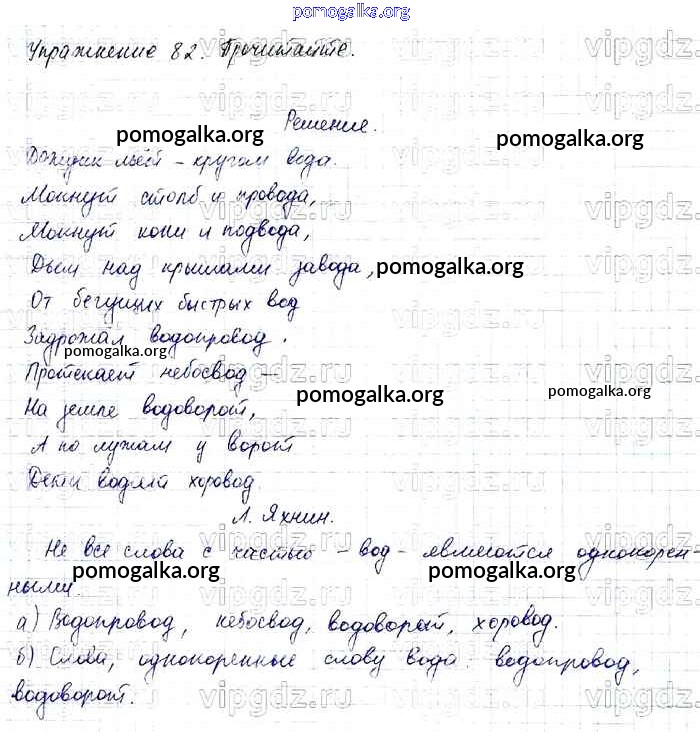 pomogalka.org
Упражнение 82. Прочитайте.
vipgdz.ru
Решение.
pomogalka.org
pomogalka.org
Дождик льёт – кругом вода.
Мокнут столб и провода,
Мокнут кони и подвода,
Дым над крышами завода,
pomogalka.org
От бегущих быстрых вод
Задрожал водопровод.
pomogalka.org
Протекает небосвод –
pomogalka.org
pomogalka.org
На земле водоворот,
А по лужам у ворот
Дети водят хоровод.
Л. Яхнин.
Не все слова с частью – вод – являются однокорен-
pomogalka.org
pomogalka.org
ными.
а) Водопровод, небосвод, водоворот, хоровод.
б) Слова, однокоренные слову вода: водопровод,
водоворот.
vipgdz.ru